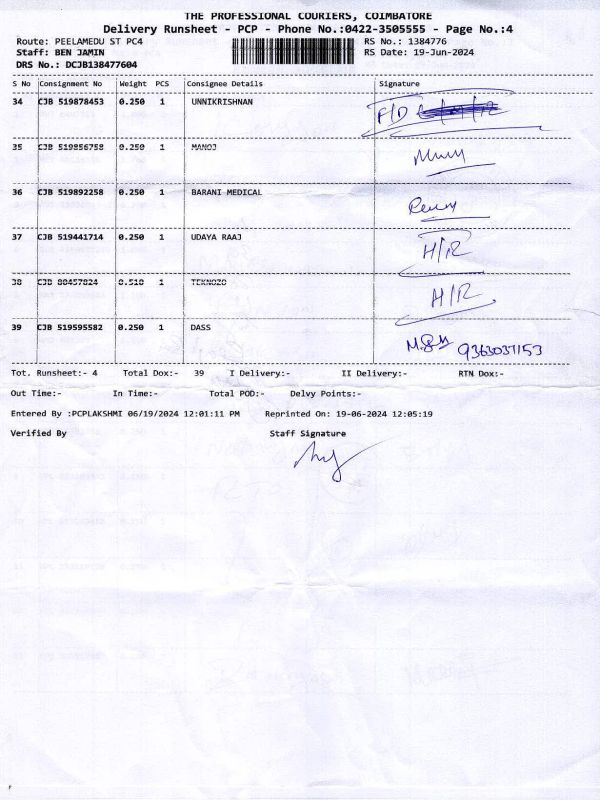 THE PROFESSIONAL COURIERS, COIMBATORE
Delivery Runsheet - PCP - Phone No.:0422-3505555 - Page No.:4
Route: PEELAMEDU ST PC4 RS No.: 1384776
Staff: BEN JAMIN RS Date: 19-Jun-2024
DRS No.: DCJB138477604
S No Consignment No Weight PCS Consignee Details Signature
34 CJB 519878453 0.250 1 UNNIKRISHNAN F/D
35 CJB 519856758 0.250 1 MANOJ
36 CJB 519892258 0.250 1 BARANI MEDICAL
37 CJB 519441714 0.250 1 UDAYA RAAJ H/R
38 CJB 80457824 0.510 1 TEKNOZO H/R
39 CJB 519595582 0.250 1 DASS 9363037153
Tot. Runsheet:- 4 Total Dox:- 39 I Delivery:- II Delivery:- RTN Dox:-
Out Time:- In Time:- Total POD:- Delvy Points:-
Entered By :PCPLAKSHMI 06/19/2024 12:01:11 PM Reprinted On: 19-06-2024 12:05:19
Verified By Staff Signature